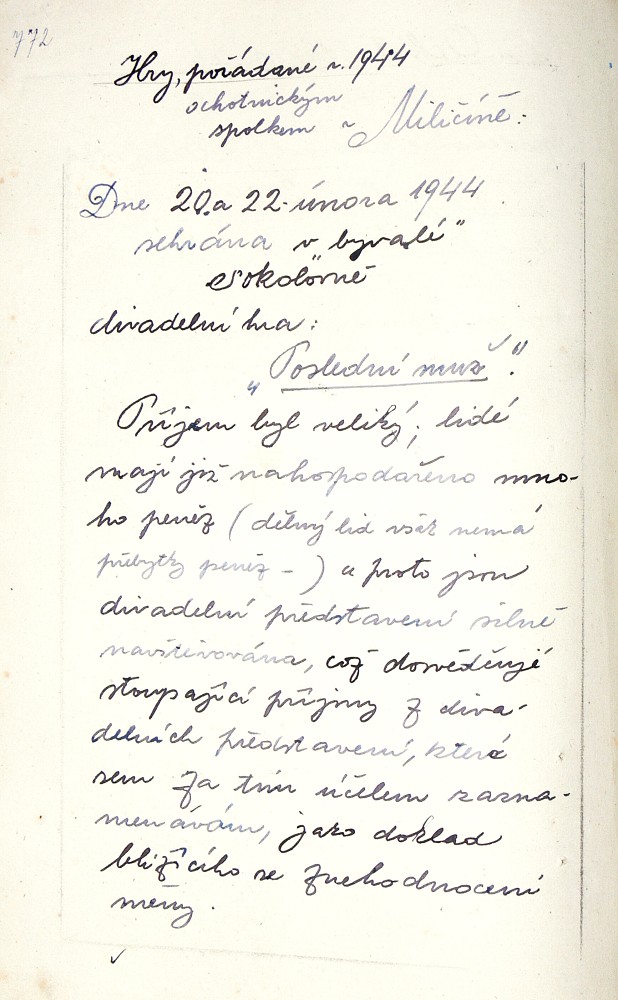 772
Hry, pořádané r. 1944
ochotnickým
spolkem v Miličíně:
Dne 20. a 22. února 1944
sehrána v "bývalé"
Sokolovně
divadelní hra:
"Poslední muž".
Příjem byl veliký; lidé
mají již nahospodařeno mno-
ho peněz (dělný lid však nemá
přebytky peněz -) a proto jsou
divadelní představení silně
navštěvována, což dosvědčují
stoupající příjmy z diva-
delních představení, která
sem za tím účelem zazna-
menávám, jako doklad
blížícího se znehodnocení
měny.